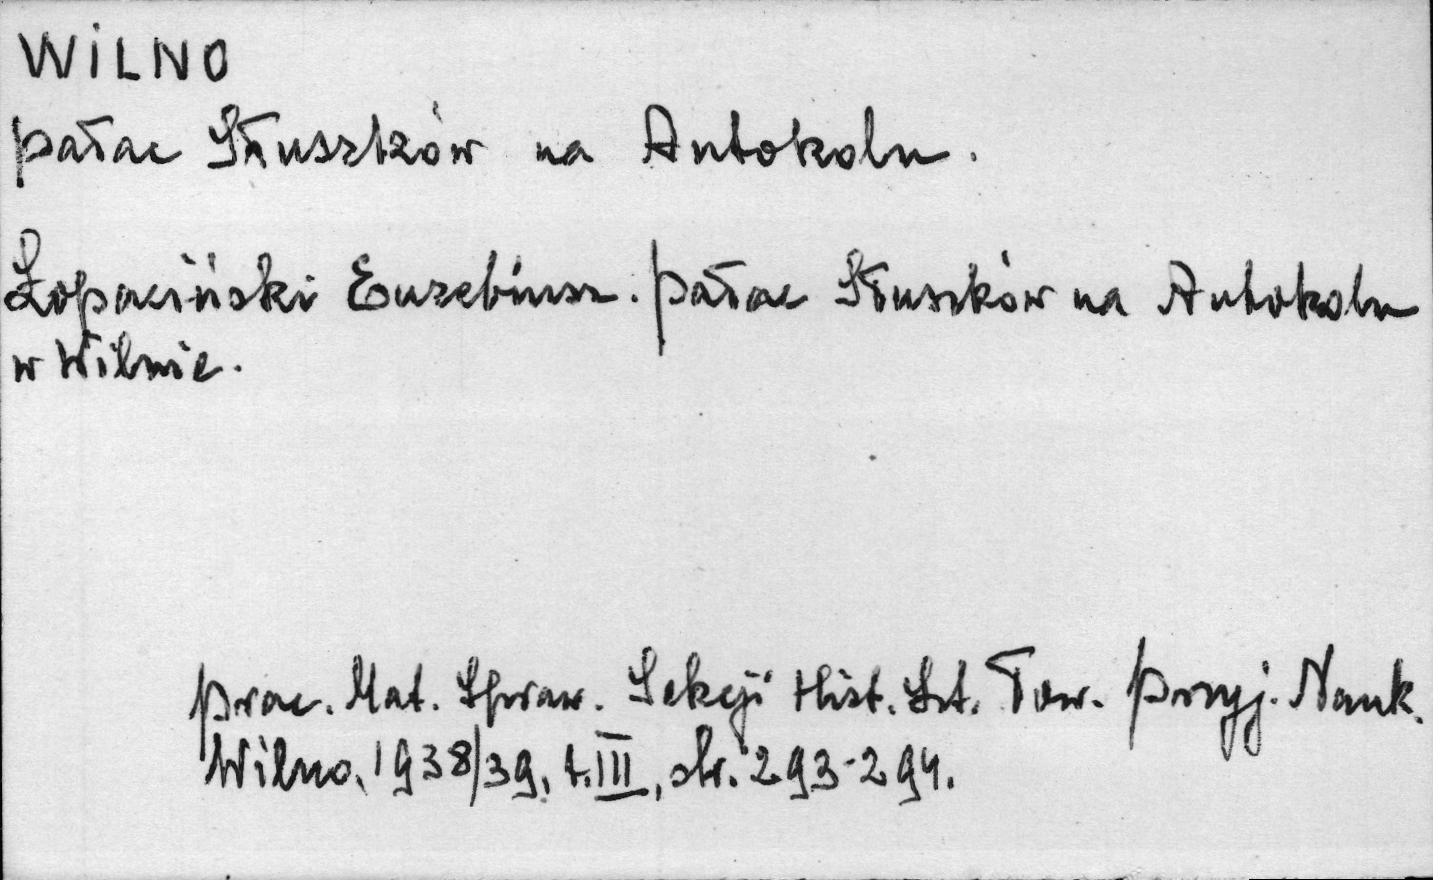 WILNO
pałac Słuszków na Antokolu.
Łopaciński Euzebiusz. Pałac Słuszków na Antokolu
w Wilnie.
Prac. Mat. Spraw. Sekcji Hist. Szt. Tow. Przyj. Nauk.
Wilno, 1938/39, t. III, str. 293-294.